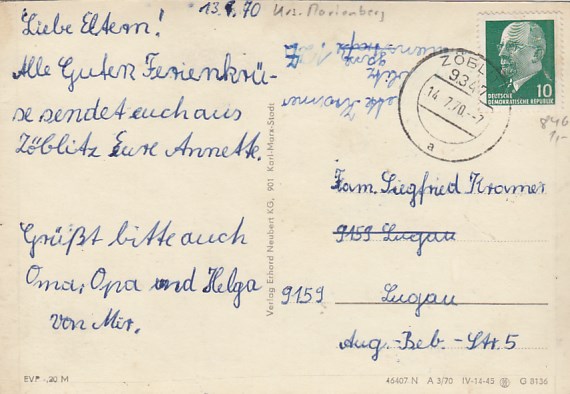 13.7.70 Krs. Marienberg
Liebe Eltern!
Alle Guten Ferienkrü-
se sendet euch aus
Zöblitz Eure Annette.
Grüßt bitte auch
Oma, Opa und Helga
von Mir.
EVP -,20 M
Verlag Erhard Neubert KG, 901 Karl-Marx-Stadt
9347
14.7.70.-7
a
10
DEUTSCHE
DEMOKRATISCHE REPUBLIK
846
1,-
Fam. Siegfried Kramer
9159 Lugau
9159 Lugau
Aug.-Beb.-Str. 5
46407 N A 3/70 IV-14-45 G 8136